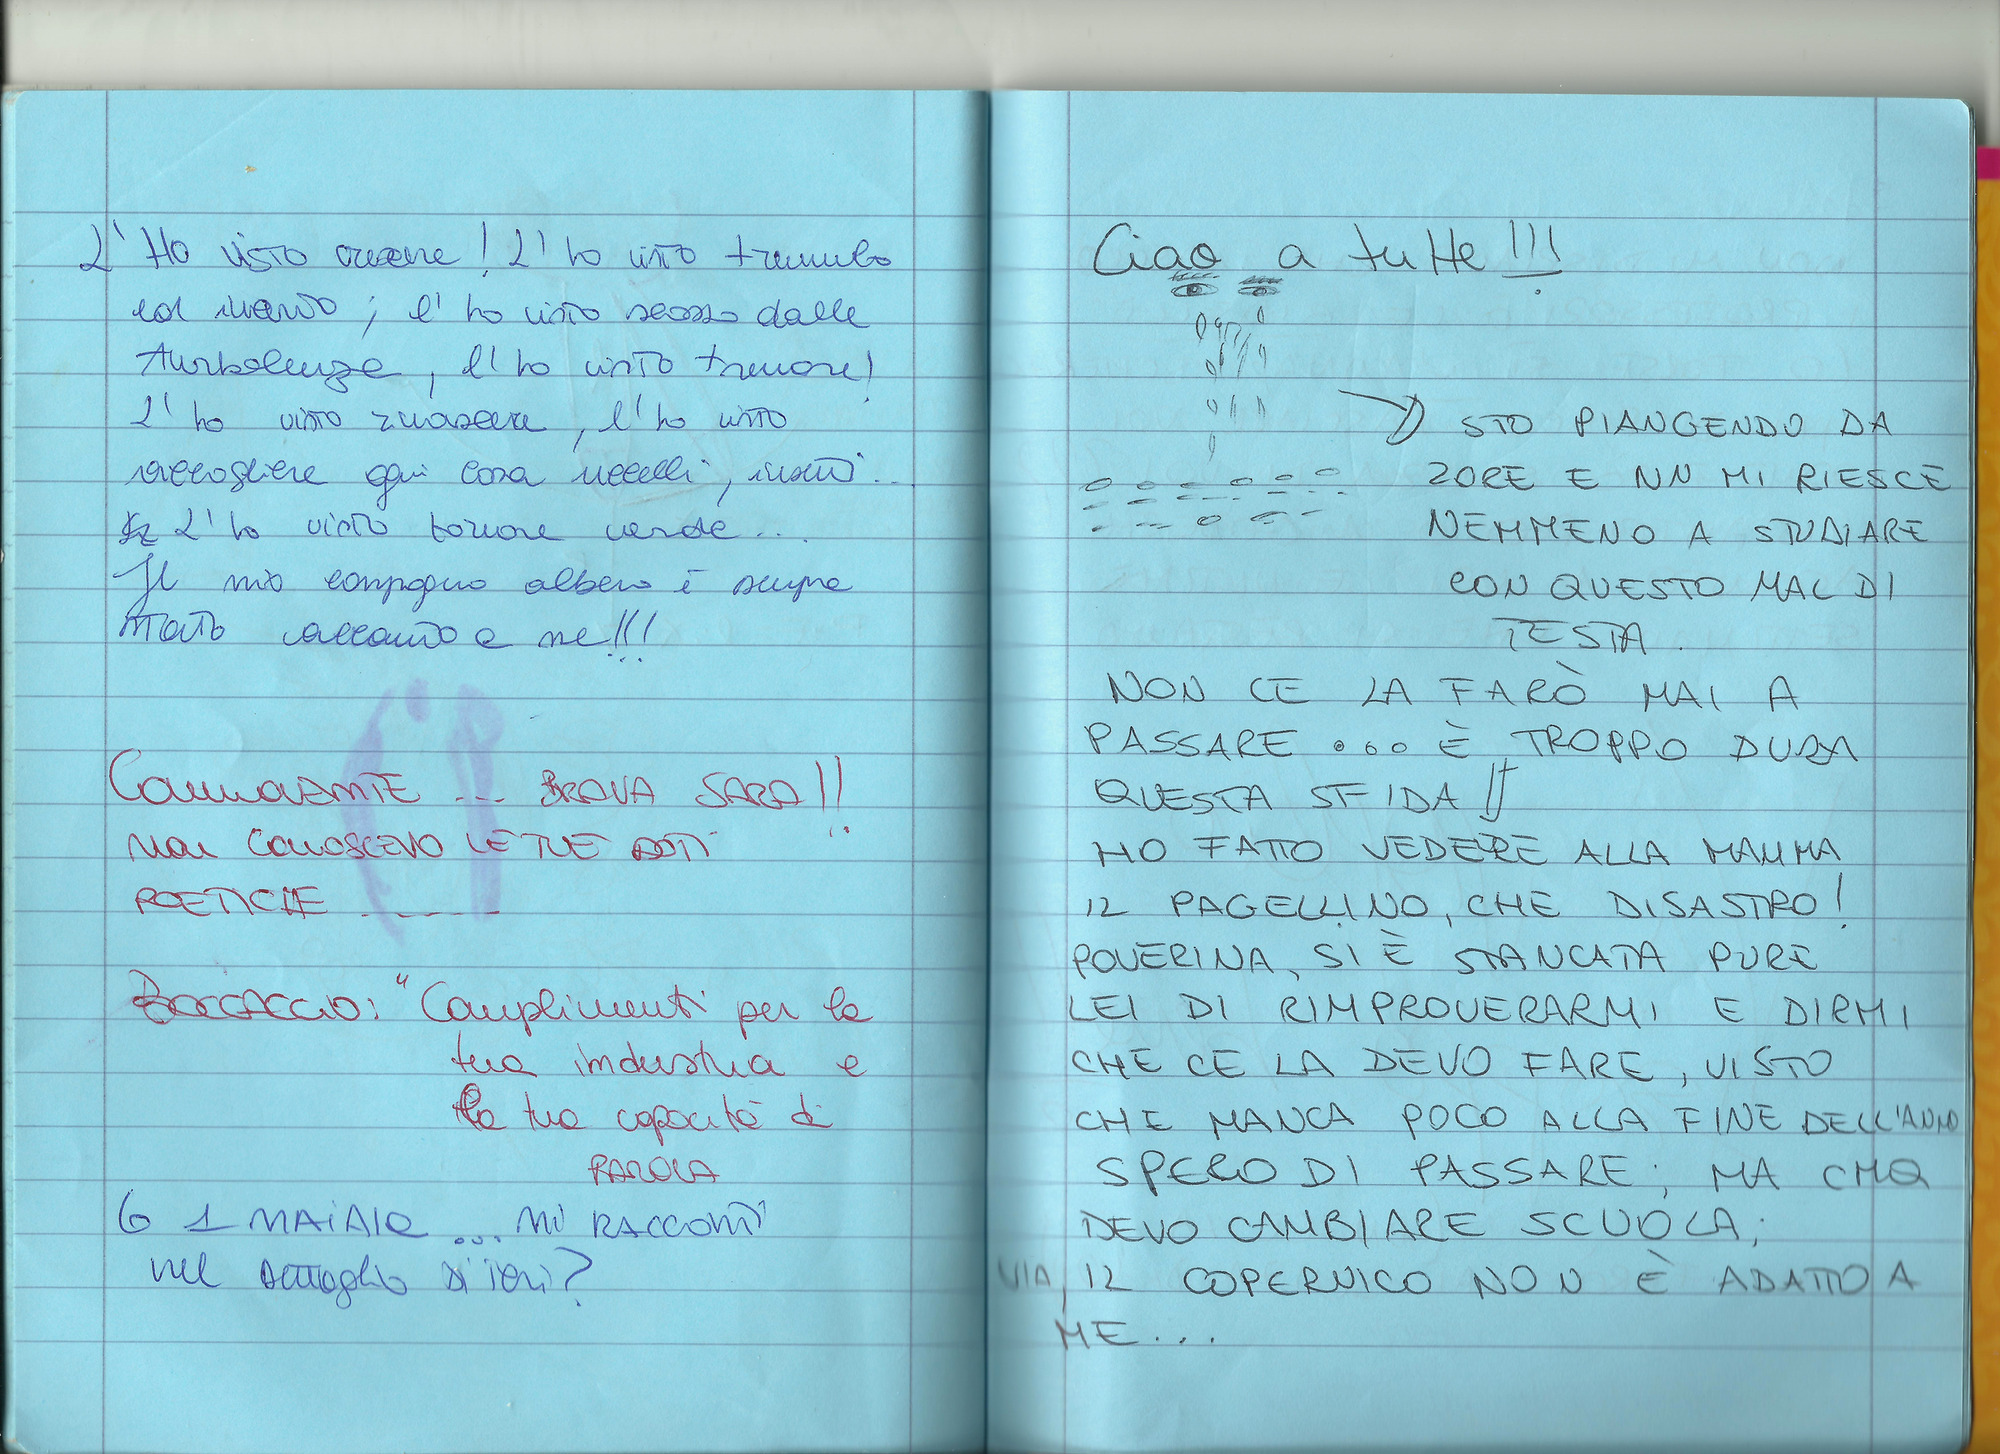 L'Ho visto crescere! L'ho visto tremulo
col vento; l'ho visto scosso dalle
turbolenze, l'ho visto tremare!
L'ho visto rinascere, l'ho visto
raccogliere ogni cosa uccelli, insetti...
L'ho visto tornare verde...
Il mio compagno albero è sempre
stato accanto a me!!!
Commovente ... BRAVA SARA!!
non CONOSCEVO LE TUE DOTI
POETICHE
BOCCACCIO: "Complimenti per la
tua industria e
la tua capacità di
PAROLA
6 1 MAIALE ... MI RACCONTI
nel dettaglio di ieri?
Ciao a tutte!!!
STO PIANGENDO DA
2ORE E NN MI RIESCE
NEMMENO A STUDIARE
CON QUESTO MAL DI
TESTA.
NON CE LA FARÒ MAI A
PASSARE ... È TROPPO DURA
QUESTA SFIDA!!
HO FATTO VEDERE ALLA MAMMA
IL PAGELLINO, CHE DISASTRO!
POVERINA, SI È STANCATA PURE
LEI DI RIMPROVERARMI E DIRMI
CHE CE LA DEVO FARE, VISTO
CHE MANCA POCO ALLA FINE DELL'ANNO
SPERO DI PASSARE; MA CMQ
DEVO CAMBIARE SCUOLA;
VIA, IL COPERNICO NON È ADATTO A
ME...